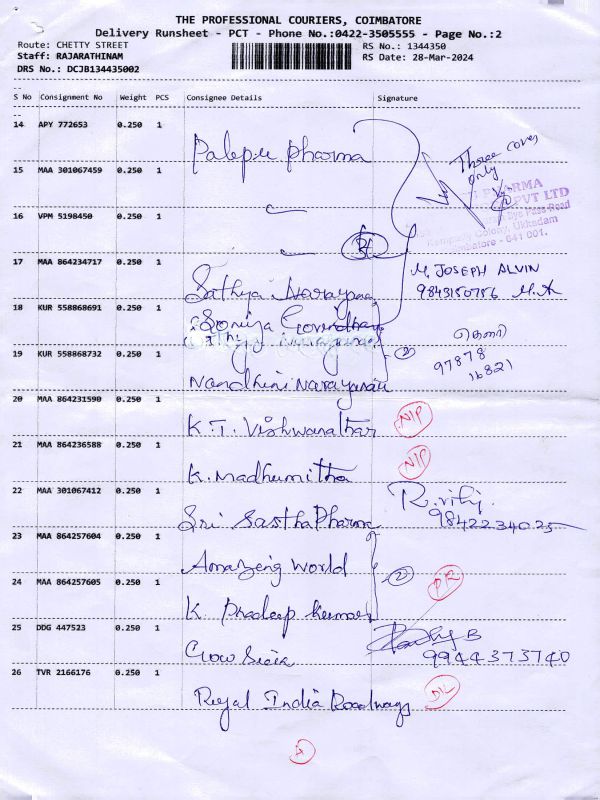 THE PROFESSIONAL COURIERS, COIMBATORE
Delivery Runsheet - PCT - Phone No.:0422-3505555 - Page No.:2
Route: CHETTY STREET
RS No.: 1344350
Staff: RAJARATHINAM
RS Date: 28-Mar-2024
DRS No.: DCJB134435002
S No Consignment No Weight PCS Consignee Details Signature
14 APY 772653 0.250 1
Palepu Pharma
Three cover
only
15 MAA 301067459 0.250 1
PHARMA
PVT LTD
16 VPM 5198450 0.250 1
Bye Pass Road
Colony, Ukkadam
- 641 001.
17 MAA 864234717 0.250 1
M. JOSEPH ALVIN
Sathya Narayanan
9843150756 M.A
18 KUR 558868691 0.250 1
Soniya Govindhan
19 KUR 558868732 0.250 1
2
97878
16821
Nandhini Narayanan
20 MAA 864231590 0.250 1
K.T. Vishwanathan
NIP
21 MAA 864236588 0.250 1
K. Madhumitha
NIP
22 MAA 301067412 0.250 1
Sri Sastha Pharma
9842234025
23 MAA 864257604 0.250 1
Amazing World
2
24 MAA 864257605 0.250 1
K. Pradeep Kumar
25 DDG 447523 0.250 1
9944373740
26 TVR 2166176 0.250 1
Royal India Roadways
DL